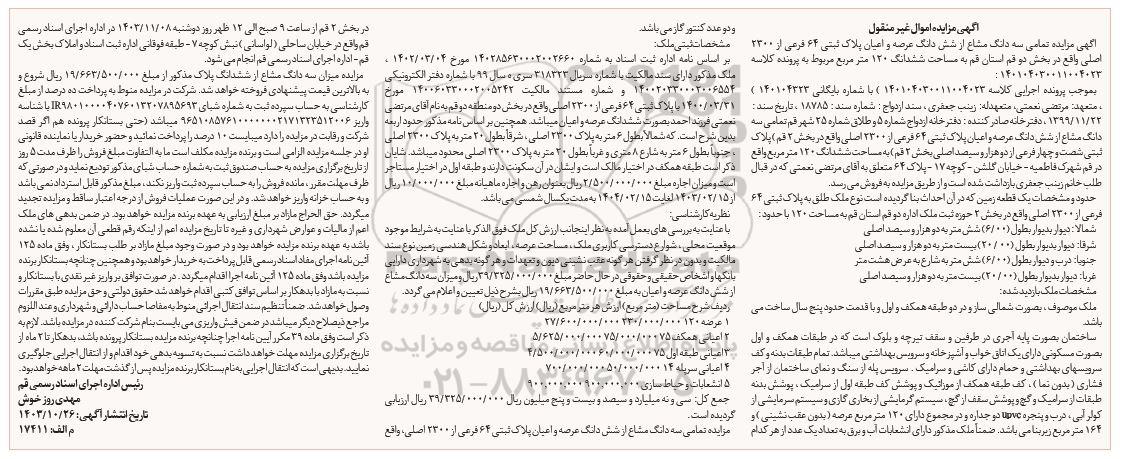 آگهی مزایده اموال غیر منقول
آگهی مزایده تمامی سه دانگ مشاع از شش دانگ عرصه و اعیان پلاک ثبتی ۶۴ فرعی از ۲۳۰۰
اصلی واقع در بخش دو قم استان قم به مساحت ششدانگ ۱۲۰ متر مربع مربوط به پرونده کلاسه
۱۴۰۱۰۴۰۳۰۰۱۱۰۰۴۰۲۳ :
بموجب پرونده اجرایی کلاسه ۱۴۰۱۰۴۰۳۰۰۱۱۰۰۴۰۲۳ ) با شماره بایگانی ۱۴۰۱۰۴۳۲۳ )
، متعهد: مرتضی نعمتی، متعهدله: زینب جعفری ، سند ازدواج : شماره سند : ۱۸۷۸۵ ، تاریخ سند :
۱۳۹۹/۱۱/۲۲ ، دفترخانه صادر کننده : دفترخانه ازدواج شماره ۵ و طلاق شماره ۲۵ شهر قم تمامی سه
دانگ مشاع از شش دانگ عرصه و اعیان پلاک ثبتی ۶۴ فرعی از ۲۳۰۰ اصلی واقع در بخش ۲ قم ) پلاک
ثبتی شصت و چهار فرعی از دو هزار و سیصد اصلی بخش ۲ قم ) به مساحت ششدانگ ۱۲۰ متر مربع واقع
در قم شهرک فاطمیه - خیابان گلشن - کوچه ۱۷ - پلاک ۶۴ متعلق به آقای مرتضی نعمتی که در قبال
طلب خانم زینب جعفری بازداشت شده است و از طریق مزایده به فروش می رسد.
حدود و مشخصات یک قطعه زمین که در آن احداث بنا گردیده است نوع ملک طلق به پلاک ثبتی ۶۴
فرعی از ۲۳۰۰ اصلی واقع در بخش ۲ حوزه ثبت ملک اداره دو قم استان قم به مساحت ۱۲۰ با حدود:
شمالا: دیوار بدیوار بطول (۶/۰۰) شش متر به دو هزار و سیصد اصلی
شرقا: دیوار بدیوار بطول (۲۰/۰۰) بیست متر به دو هزار و سیصد اصلی
جنوبا: درب و دیوار بطول (۶/۰۰) شش متر به شارع به عرض هشت متر
غربا: دیوار بدیوار بطول (۲۰/۰۰) بیست متر به دو هزار و سیصد اصلی
مشخصات ملک بازدید شده:
ملک موصوف ، بصورت شمالی ساز و در دو طبقه همکف و اول و با قدمت حدود پنج سال ساخت می
باشد.
ساختمان بصورت پایه آجری در طرفین و سقف تیرچه و بلوک است که در طبقات همکف و اول
بصورت مسکونی دارای یک اتاق خواب و آشپزخانه و سرویس بهداشتی میباشد. تمام طبقات بدنه و کف
سرویسهای بهداشتی و حمام دارای کاشی و سرامیک . سرویس پله از سنگ و نمای ساختمان از آجر
فشاری ( بدون نما ) ، کف طبقه همکف از موزائیک و پوشش کف طبقه اول از سرامیک ، پوشش بدنه
طبقات از سرامیک و گچ و پوشش سقف از گچ ، سیستم گرمایشی از بخاری گازی و سیستم سرمایشی از
کولر آبی ، درب و پنجره upvc دو جداره و در مجموع دارای ۱۲۰ متر مربع عرصه (بدون عقب نشینی) و
۱۶۴ متر مربع زیربنا می باشد. ضمناً ملک مذکور دارای انشعابات آب و برق به تعداد یک عدد از هر کدام
و دو عدد کنتور گاز می باشد.
مشخصات ثبتی ملک:
بر اساس نامه اداره ثبت اسناد به شماره ۱۴۰۲۸۵۶۳۰۰۰۲۰۰۲۶۶۰ مورخ ۱۴۰۲/۰۳/۰۴ ،
ملک مذکور دارای سند مالکیت با شماره سریال ۳۱۸۳۲۳ سری ه سال ۹۹ با شماره دفتر الکترونیکی
۱۴۰۰۲۰۳۳۰۰۰۳۰۰۶۵۵۴ و شماره مستند مالکیت ۱۴۰۰۶۰۳۳۰۰۰۲۰۰۵۲۴۲ مورخ
۱۴۰۰/۰۲/۳۱ با پلاک ثبتی ۶۴ فرعی از ۲۳۰۰ اصلی واقع در بخش دو منطقه دو قم به نام آقای مرتضی
نعمتی فرزند احمد بصورت ششدانگ عرصه و اعیان میباشد. همچنین بر اساس نامه مذکور حدود اربعه
بدین شرح است. که شمالا بطول ۶ متر به پلاک ۲۳۰۰ اصلی ، شرقاً بطول ۲۰ متر به پلاک ۲۳۰۰ اصلی
، جنوباً بطول ۶ متر به شارع ۸ متری و غرباً بطول ۲۰ متر به پلاک ۲۳۰۰ اصلی محدود میباشد. شایان
ذکر است طبقه همکف در اختیار مالک است و ایشان در آن سکونت دارند و طبقه اول در اختیار مستاجر
است و میزان اجاره مبلغ ۲/۵۰۰/۰۰۰/۰۰۰ ریال بعنوان رهن و اجاره ماهیانه مبلغ ۱۰/۰۰۰/۰۰۰ ریال
از ۱۴۰۳/۰۲/۱۵ لغایت ۱۴۰۴/۰۲/۱۵ به مدت یکسال شمسی می باشد.
نظریه کارشناسی:
با عنایت به بررسی های بعمل آمده به نظر اینجانب ارزش کل ملک فوق الذکر با عنایت به شرایط موجود
موقعیت محلی ، شوارع دسترسی کاربری ملک ، مساحت عرصه ، ابعاد و شکل هندسی زمین نوع سند
مالکیت و بدون در نظر گرفتن هر گونه عقب نشینی دیون و تعهدات و هر گونه بدهی به شهرداری دارایی
بانکها و اشخاص حقیقی و حقوقی در حال حاضر مبلغ ۳۹/۳۲۵/۰۰۰/۰۰۰ ریال و میزان سه دانگ مشاع
از شش دانگ عرصه و اعیان به مبلغ ۱۹/۶۶۳/۵۰۰/۰۰۰ ریال بشرح ذیل تعیین و اعلام می گردد.
ردیف شرح مساحت (متر مربع) ارزش هر متر مربع (ریال) ارزش کل (ریال)
۱ عرصه ۱۲۰ ۲۳۰/۰۰۰/۰۰۰ ۲۷/۶۰۰/۰۰۰/۰۰۰
۲ اعیانی همکف ۷۵ ۷۵/۰۰۰/۰۰۰ ۵/۶۲۵/۰۰۰/۰۰۰
۳ اعیانی طبقه اول ۷۵ ۶۰/۰۰۰/۰۰۰ ۴/۵۰۰/۰۰۰/۰۰۰
۴ اعیانی سرپله ۱۴ ۵۰/۰۰۰/۰۰۰ ۷۰۰/۰۰۰/۰۰۰
۵ انشعابات و حیاط سازی ۹۰۰.۰۰۰.۰۰۰ ۹۰۰.۰۰۰.۰۰۰
جمع کل: سی و نه میلیارد و سیصد و بیست و پنج میلیون ریال ۳۹/۳۲۵/۰۰۰/۰۰۰ ریال ارزیابی
گردیده است.
مزایده تمامی سه دانگ مشاع از شش دانگ عرصه و اعیان پلاک ثبتی ۶۴ فرعی از ۲۳۰۰ اصلی، واقع
در بخش ۲ قم از ساعت ۹ صبح الی ۱۲ ظهر روز دوشنبه ۱۴۰۳/۱۱/۰۸ در اداره اجرای اسناد رسمی
قم واقع در خیابان ساحلی (لواسانی) نبش کوچه ۷ - طبقه فوقانی اداره ثبت اسناد و املاک بخش یک
قم - اداره اجرای اسناد رسمی قم انجام می شود.
مزایده میزان سه دانگ مشاع از ششدانگ پلاک مذکور از مبلغ ۱۹/۶۶۳/۵۰۰/۰۰۰ ریال شروع و
به بالاترین قیمت پیشنهادی فروخته خواهد شد. شرکت در مزایده منوط به پرداخت ده درصد از مبلغ
کارشناسی به حساب سپرده ثبت به شماره شبای IR۹۸۰۱۰۰۰۰۴۰۷۶۰۱۳۲۰۷۸۹۵۶۹۳ با شناسه
واریز ۹۶۵۱۰۸۵۷۶۱۰۰۰۰۰۰۰۲۱۷۱۳۲۳۵۱۲۰۰۶ میباشد (حتی بستانکار پرونده هم اگر قصد
شرکت و رقابت در مزایده را دارد میبایست ۱۰ درصد را پرداخت نمائید و حضور خریدار یا نماینده قانونی
او در جلسه مزایده الزامی است و برنده مزایده مکلف است ما به التفاوت مبلغ فروش را ظرف مدت ۵ روز
از تاریخ برگزاری مزایده به حساب صندوق ثبت به شماره حساب شبای مذکور تودیع نماید و در صورتی که
ظرف مهلت مقرر ، مانده فروش را به حساب سپرده ثبت واریز نکند ، مبلغ مذکور قابل استرداد نمی باشد
و به حساب خزانه واریز خواهد شد. و در این صورت عملیات فروش از درجه اعتبار ساقط و مزایده تجدید
میگردد. حق الحراج مازاد بر مبلغ ارزیابی به عهده برنده مزایده خواهد بود. در ضمن بدهی های ملک
اعم از مالیات و عوارض شهرداری و غیره تا تاریخ مزایده اعم از اینکه رقم قطعی آن معلوم شده یا نشده
باشد به عهده برنده مزایده خواهد بود و در صورت وجود مبلغ مازاد بر طلب بستانکار ، وفق ماده ۱۲۵
آئین نامه اجرای مفاد اسناد رسمی قابل پرداخت به خریدار خواهد بود و همچنین چنانچه بستانکار برنده
مزایده باشد وفق ماده ۱۲۵ آئین نامه اجرا اقدام میگردد . در صورت توافق بر واریز غیر نقدی با بستانکار و
نسبت به مازاد با بدهکار بر اساس توافق کتبی اقدام خواهد شد حقوق دولتی و حق مزایده طبق مقررات
وصول خواهد شد. ضمناً تنظیم سند انتقال اجرائی منوط به مفاصا حساب دارائی و شهرداری و عند اللزوم
مراجع ذیصلاح دیگر میباشد در ضمن فیش واریزی می بایست بنام شرکت کننده در مزایده باشد. لازم به
ذکر است وفق ماده ۳۹ مکرر آیین نامه اجرا چنانچه برنده مزایده بستانکار پرونده باشد، بدهکار تا ۲ ماه از
تاریخ برگزاری مزایده مهلت خواهد داشت نسبت به تسویه بدهی خود اقدام و از انتقال اجرایی جلوگیری
نمایید. بدیهی است که انتقال اجرایی به نام بستانکار برنده مزایده پس از گذشت مهلت ۲ ماهه خواهد بود.
رئیس اداره اجرای اسناد رسمی قم
مهدی روز خوش
تاریخ انتشار آگهی: ۱۴۰۳/۱۰/۲۶
م الف: ۱۷۴۱۱
پایگاه اطلاع رسانی مناقصه و مزایده
۰۲۱-۸۸۳۴۹۶۷۰-۵